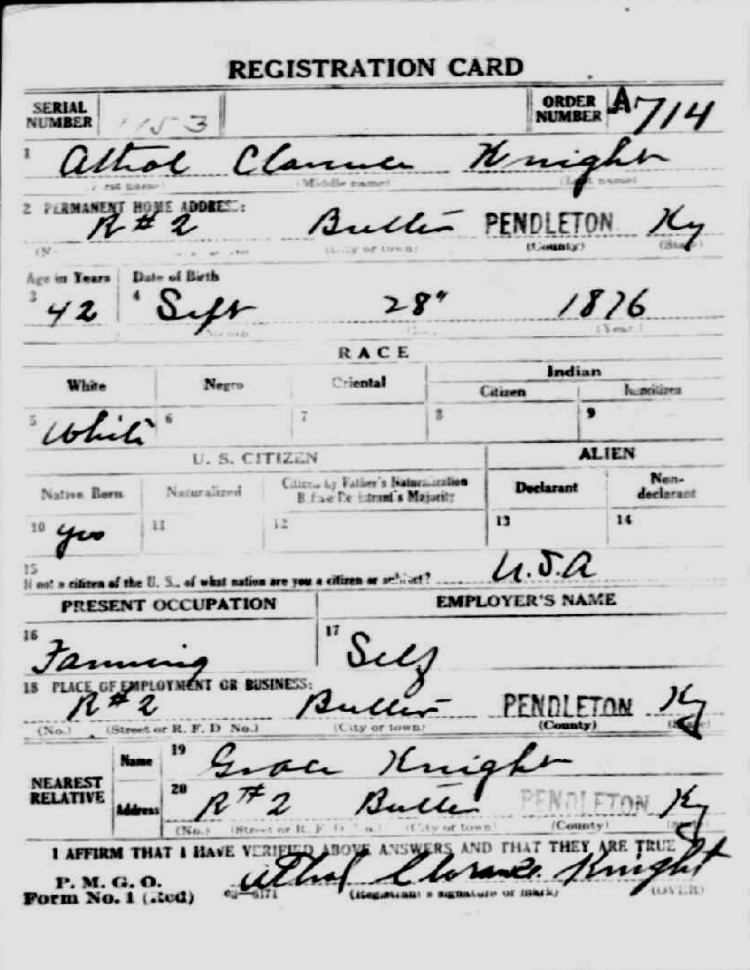 REGISTRATION CARD
SERIAL NUMBER 1153 ORDER NUMBER A714
1 Athol Clarence Knight
(First name) (Middle name) (Last name)
2 PERMANENT HOME ADDRESS:
R#2 Butler PENDLETON Ky
(City or town) (County) (State)
Age in Years Date of Birth
3 42 4 Sept 28" 1876
(Year.)
RACE
White Negro Oriental Indian
Citizen Noncitizen
5 White 6 7 8 9
U. S. CITIZEN ALIEN
Native Born Naturalized Citizen by Father's Naturalization Before Registrant's Majority Declarant Non-declarant
10 Yes 11 12 13 14
15 If not a citizen of the U. S., of what nation are you a citizen or subject? U.S.A
PRESENT OCCUPATION EMPLOYER'S NAME
16 Farming 17 Self
18 PLACE OF EMPLOYMENT OR BUSINESS:
R#2 Butler PENDLETON Ky
(No.) (Street or R. F. D. No.) (City or town) (County) (State)
NEAREST RELATIVE Name 19 Grace Knight
Address 20 R#2 Butler PENDLETON Ky
(No.) (Street or R. F. D. No.) (City or town) (County) (State)
I AFFIRM THAT I HAVE VERIFIED ABOVE ANSWERS AND THAT THEY ARE TRUE
P. M. G. O.
Form No. 1 (Red) 03—6171 Athol Clarence Knight
(Registrant's signature or mark) (OVER)